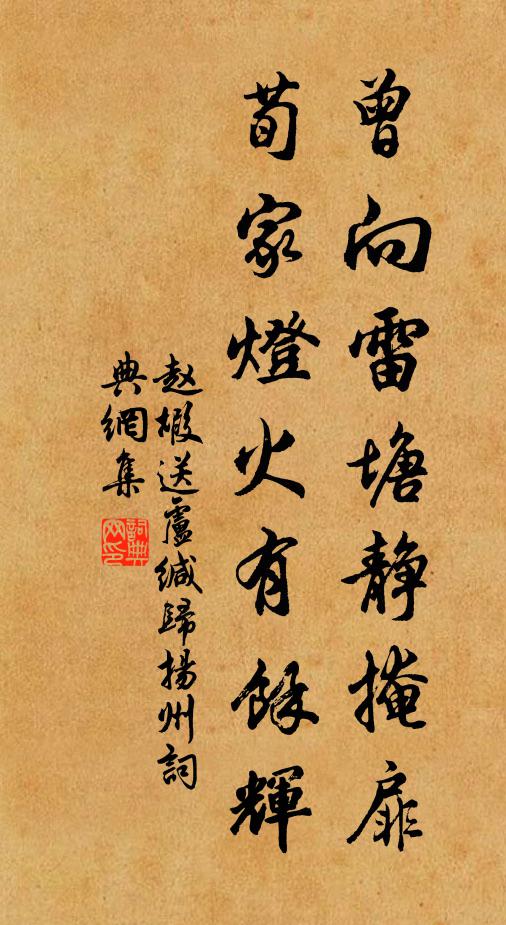 曾向雷塘静掩扉
荀家燈火有餘輝
赵嘏送盧缄歸揚州詞
典網集
詞典网印